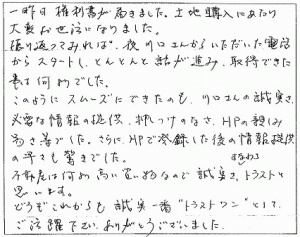 一昨日権利書が届きました。土地購入にあたり
大変お世話になりました。
振り返ってみれば、夜川口さんからいただいた電話
からスタートし、とんとんと話が進み、取得できた
事は何めでした。
このようにスムーズにできたのも、川口さんの誠実さ、
必要な情報の提供、押しつけのなさ、HPの親しみ
易さ等でした。さらに、HPで登録した後の情報提供
の早さも驚きでした。
不動産は何め高い買い物なので誠実さ、トラストと
すなわち
思います。
どうぞこれからも誠実一番"トラストワン"として
ご活躍下さい。ありがとうございました。